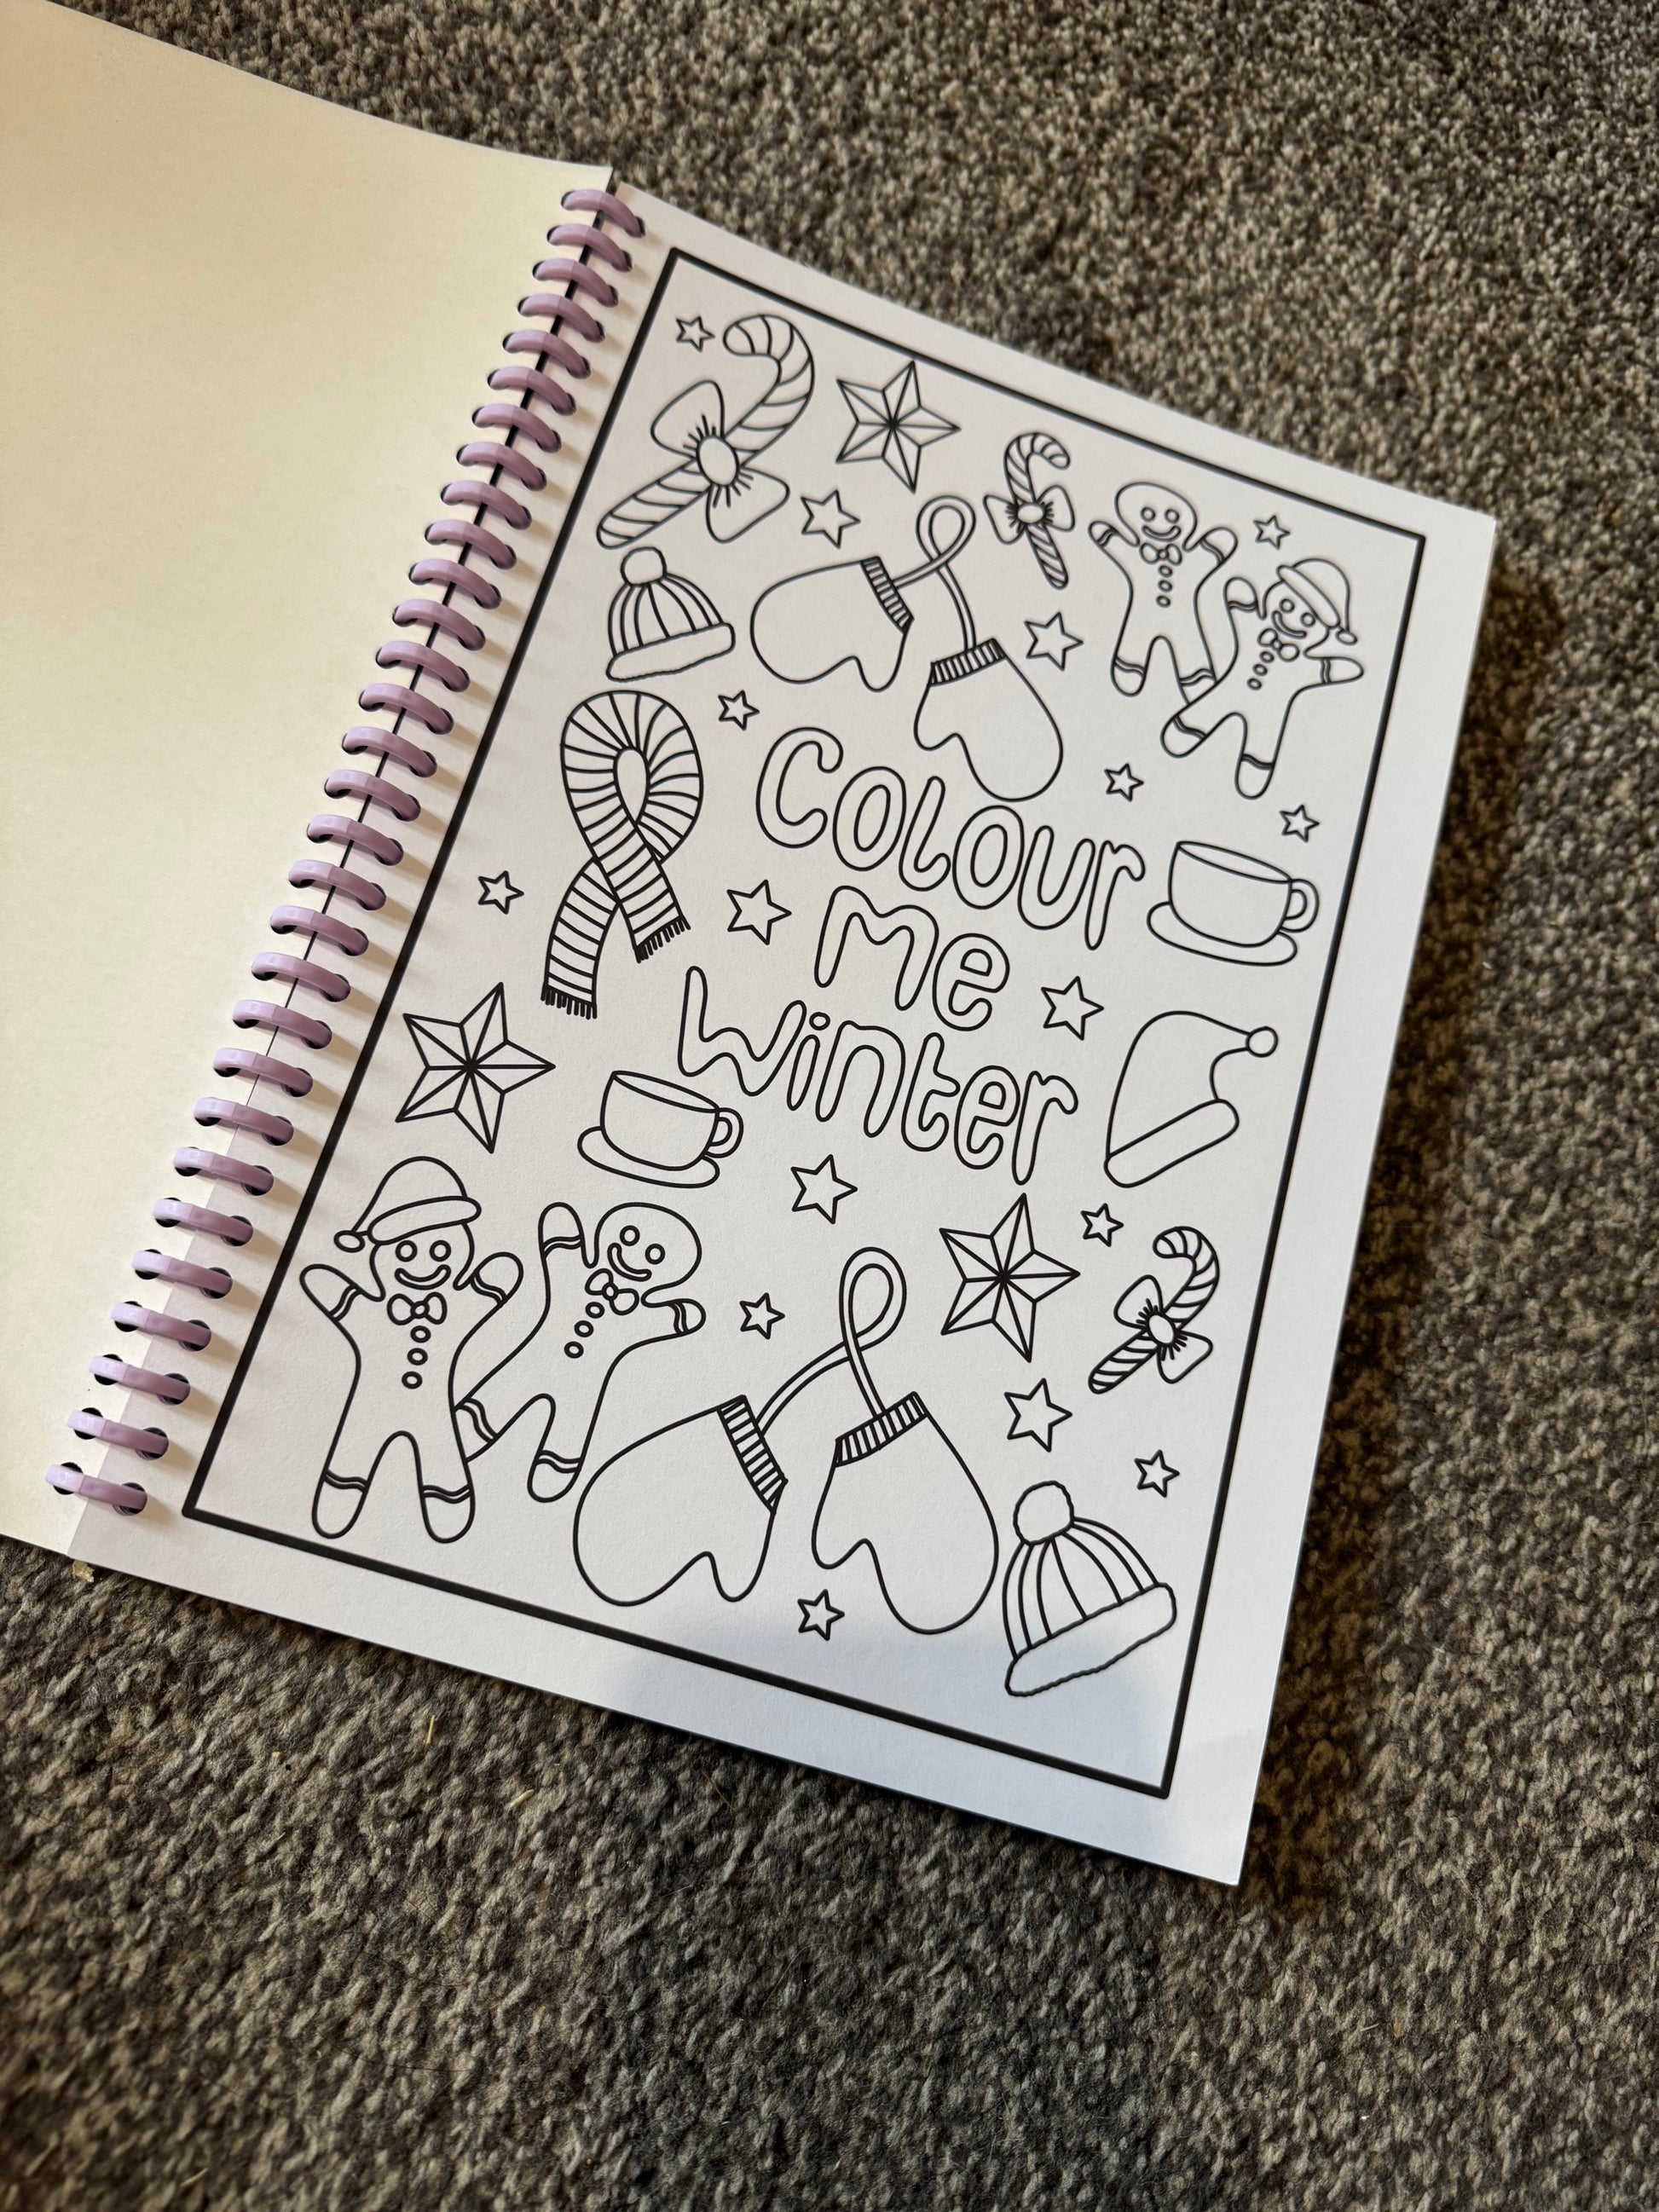 Colour
Me
Winter